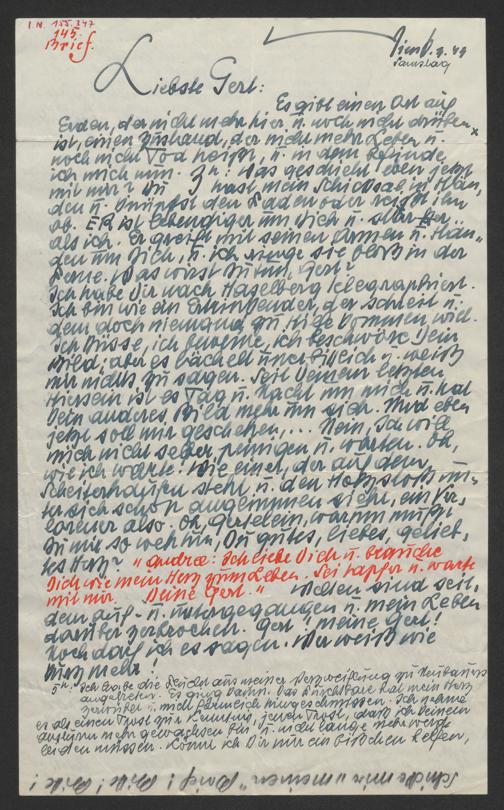 I.N. 155.247
145.
Brief.
4.44
Samstag
Liebste Gert:
Es gibt einen Ort auf
Erden, der nicht mehr hier u. noch nicht drüben
ist, einen Zustand, der nicht mehr Leben u.
noch nicht Tod heißt, u. in dem befinde
ich mich nun. Was geschieht eben jetzt
mit mir? Du hast mein Schicksal in Hän-
den u. knüpfst den Faden oder reißt ihn
ab. ER ist lebendiger um Dich u. stärker..
als ich. Er greift mit seinen Armen u. Hän-
den um Dich, u. ich ringe sie bloß in der
Ferne. Was wirst Du tun, Gert?
Ich habe Dir nach Hagelberg telegraphiert.
Ich bin wie ein Ertrinkender, der schreit u.
dem doch niemand zu Hilfe kommen will.
Ich küsse, ich beschwöre Dein
Bild; aber es lächelt unerbittlich u. weiß
mir nichts zu sagen. Seit Deinem letzten
Hiersein ist es Tag u. Nacht um mich u. hat
kein anderes Bild mehr um sich. Und eben
jetzt soll mir geschehen,... Nein, ich will
mich nicht selber peinigen u. warten. Oh,
wie ich warte! Wie einer, der auf dem
Scheiterhaufen steht u. den Holzstoß un-
ter sich schon angezunden sieht, ein Ver-
lorener also. Oh, Gertelein, warum mußt
Du mir so weh tun, Du gutes, liebes, gelieb-
tes Herz? "Andrée: Ich liebe Dich u. brauche
Dich wie mein Herz zum Leben. Sei tapfer u. warte
mit mir. Deine Gert." Welten sind seit-
dem auf- u. untergegangen u. mein Leben
darüber zerbrochen. Gert! meine Gert!
Noch darf ich es sagen. Wer weiß wie
kurz mehr!
Ich habe die Flucht aus meiner Verzweiflung zu Neubauers
angetreten. Es ging kaum. Das Furchtbare hat mein Herz
u. mich förmlich hingeschmissen. Ich nehme
es als einen Trost zur Kenntnis, jenen Trost, daß ich Deinem
mehr gewachsen bin u. nicht lange mehr werde
leiden müssen. Könnt ich Dir nur ein bißchen helfen,
Schick mir "meinen" Brief! Bitte! Bitte!